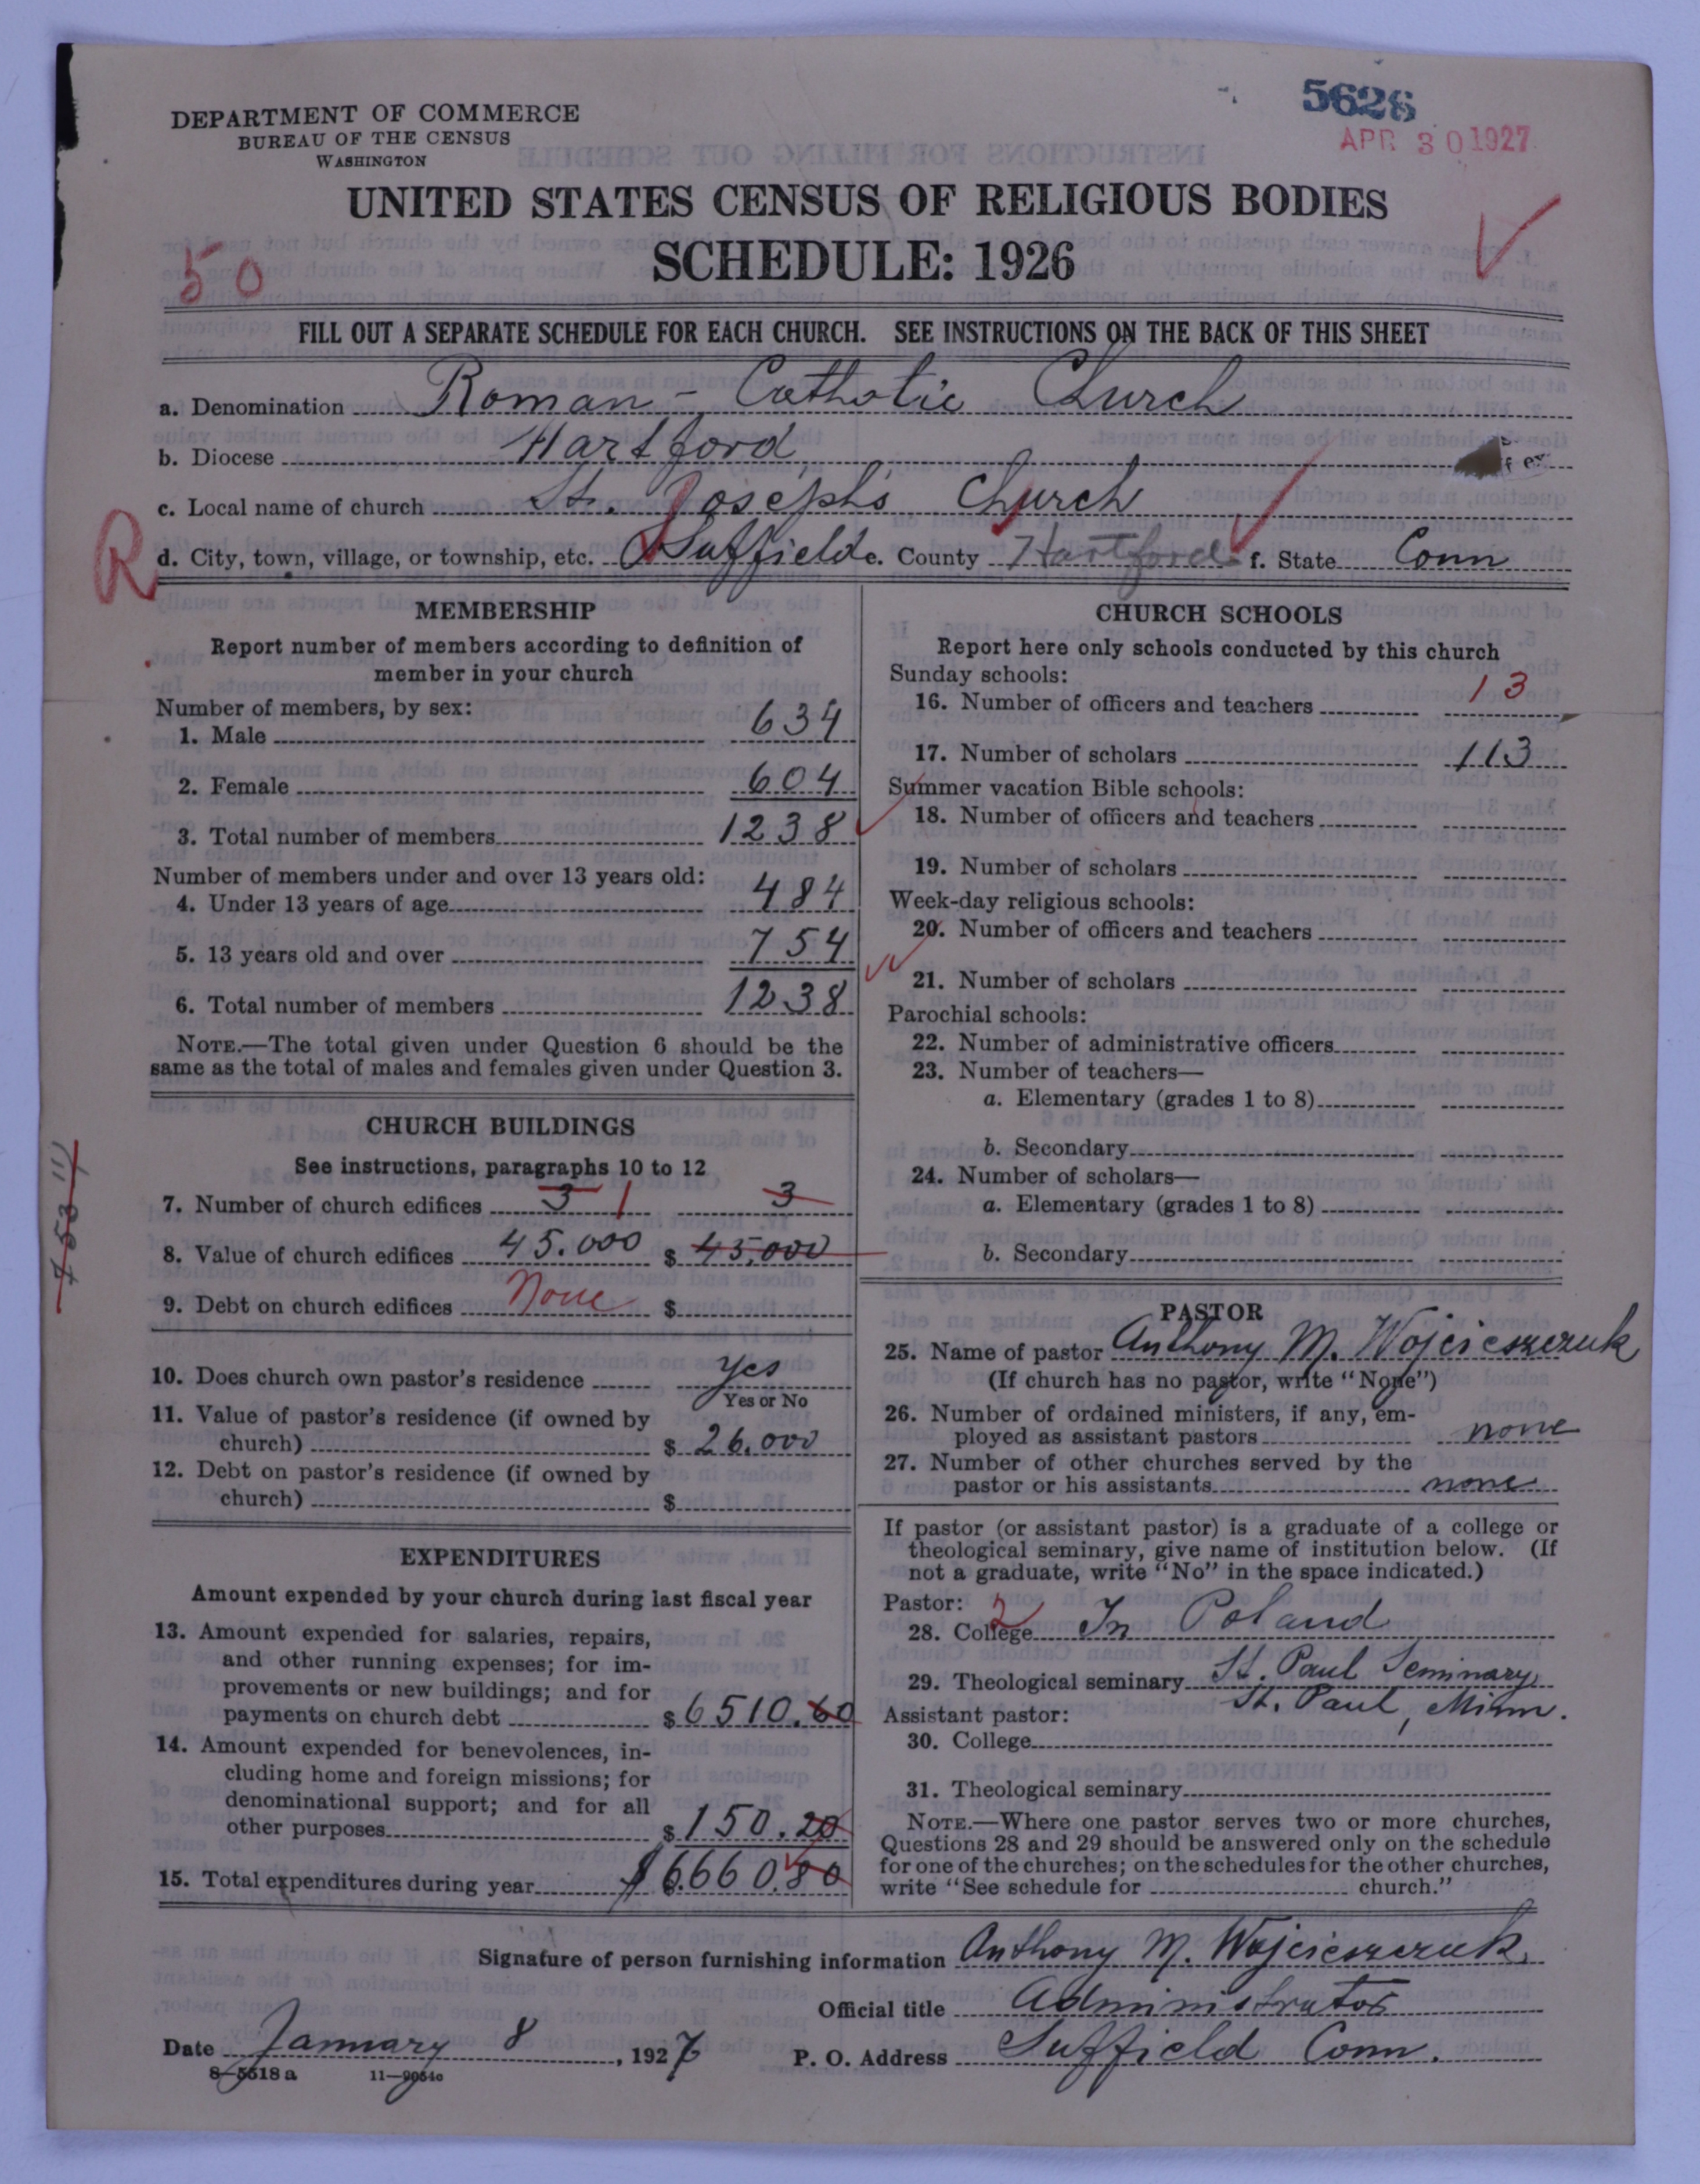 5628
APR 30 1927
DEPARTMENT OF COMMERCE
BUREAU OF THE CENSUS
WASHINGTON
UNITED STATES CENSUS OF RELIGIOUS BODIES
SCHEDULE: 1926
50
FILL OUT A SEPARATE SCHEDULE FOR EACH CHURCH. SEE INSTRUCTIONS ON THE BACK OF THIS SHEET
a. Denomination Roman - Catholic Church
b. Diocese Hartford
c. Local name of church St. Joseph's Church
R
d. City, town, village, or township, etc. Suffield e. County Hartford f. State Conn
MEMBERSHIP
Report number of members according to definition of
member in your church
Number of members, by sex:
1. Male 634
2. Female 604
3. Total number of members 1238
Number of members under and over 13 years old:
4. Under 13 years of age 484
5. 13 years old and over 754
6. Total number of members 1238
NOTE.—The total given under Question 6 should be the
same as the total of males and females given under Question 3.
CHURCH BUILDINGS
See instructions, paragraphs 10 to 12
7. Number of church edifices 3 1 3
8. Value of church edifices 45.000 $ 45,000
9. Debt on church edifices None $
10. Does church own pastor's residence Yes
Yes or No
11. Value of pastor's residence (if owned by
church) $ 26.000
12. Debt on pastor's residence (if owned by
church) $
EXPENDITURES
Amount expended by your church during last fiscal year
13. Amount expended for salaries, repairs,
and other running expenses; for im-
provements or new buildings; and for
payments on church debt $ 6510.60
14. Amount expended for benevolences, in-
cluding home and foreign missions; for
denominational support; and for all
other purposes $ 150.20
15. Total expenditures during year $6660.80
CHURCH SCHOOLS
Report here only schools conducted by this church
Sunday schools:
16. Number of officers and teachers 13
17. Number of scholars 113
Summer vacation Bible schools:
18. Number of officers and teachers
19. Number of scholars
Week-day religious schools:
20. Number of officers and teachers
21. Number of scholars
Parochial schools:
22. Number of administrative officers
23. Number of teachers—
a. Elementary (grades 1 to 8)
b. Secondary
24. Number of scholars—
a. Elementary (grades 1 to 8)
b. Secondary
PASTOR
25. Name of pastor Anthony M. Wojcieszczuk
(If church has no pastor, write "None")
26. Number of ordained ministers, if any, em-
ployed as assistant pastors none
27. Number of other churches served by the
pastor or his assistants none
If pastor (or assistant pastor) is a graduate of a college or
theological seminary, give name of institution below. (If
not a graduate, write "No" in the space indicated.)
Pastor: 2
28. College In Poland
29. Theological seminary St. Paul Seminary
St. Paul, Minn.
Assistant pastor:
30. College
31. Theological seminary
NOTE.—Where one pastor serves two or more churches,
Questions 28 and 29 should be answered only on the schedule
for one of the churches; on the schedules for the other churches,
write "See schedule for church."
Signature of person furnishing information Anthony M. Wojcieszczuk
Official title Administrator
Date January 8, 1927 P. O. Address Suffield Conn.
8-5518a 11-9054c